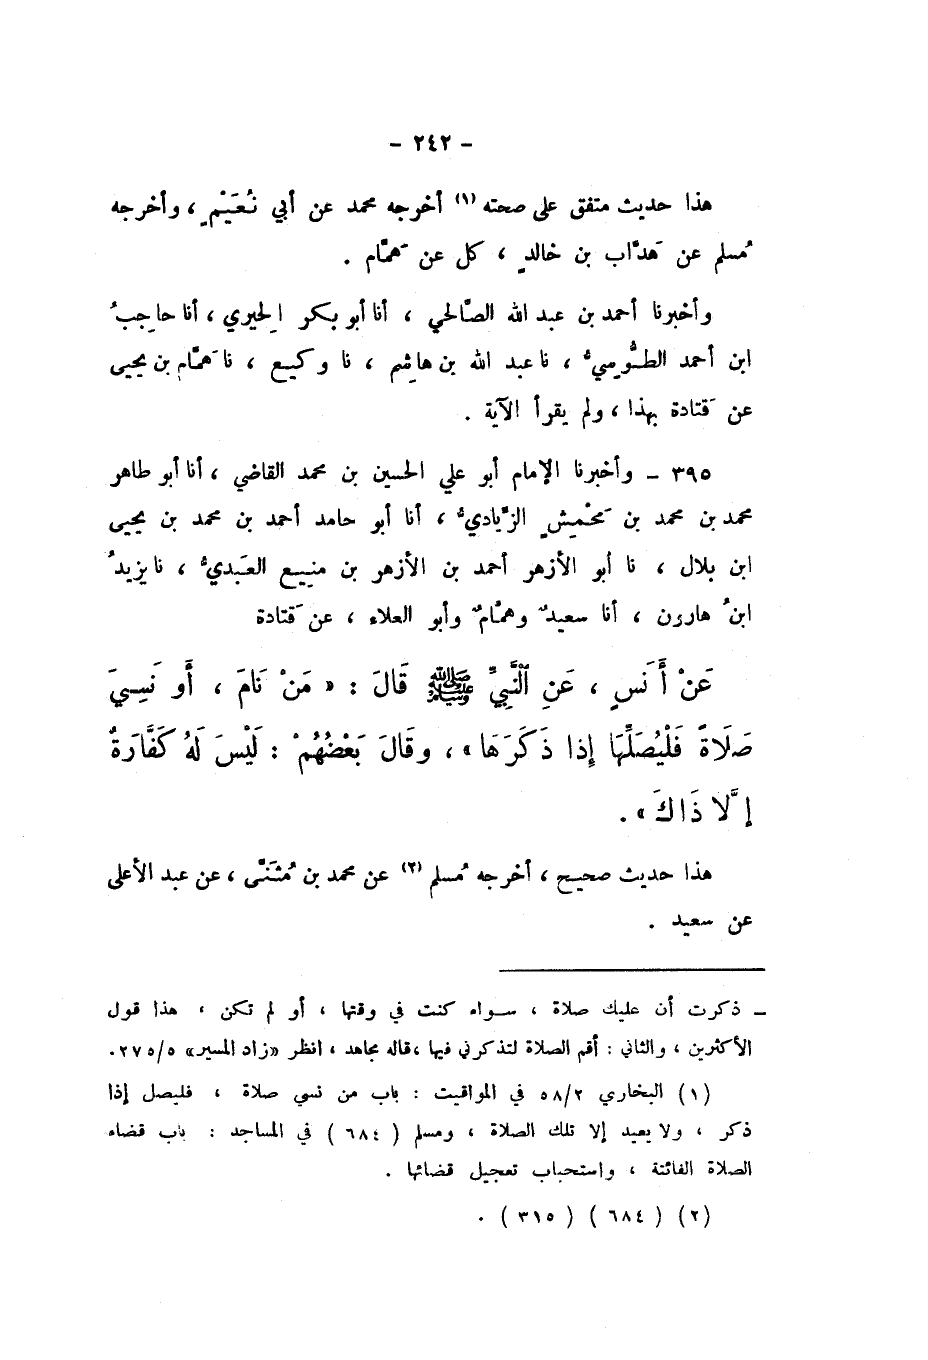 - ٢٤٢ -
هذا حديث متفق على صحته (١) أخرجه محمد عن أبي نُعَيْمٍ ، وأخرجه
مُسلم عن هَدَّاب بن خالدٍ ، كل عن هَمَّام .
وأخبرنا أحمد بن عبد الله الصَّالحي ، أنا أبو بكر الحِيري ، أنا حاجِبُ
ابن أحمد الطُّوسِيُّ ، نا عبد الله بن هاشِم ، نا وكيع ، نا هَمَّام بن يحيى
عن قَتادة بهذا ، ولم يقرأ الآية .
٣٩٥ - وأخبرنا الإمام أبو علي الحسين بن محمد القاضي ، أنا أبو طاهر
محمد بن محمد بن مَحْمِشٍ الزِّياديُّ ، أنا أبو حامد أحمد بن محمد بن يحيى
ابن بلال ، نا أبو الأزهر أحمد بن الأزهر بن منِيع العَبديُّ ، نا يزيدُ
ابنُ هارون ، أنا سعيدٌ وهمَّامٌ وأبو العلاء ، عن قَتادة
عَنْ أَنَسٍ ، عَنِ النَّبِيِّ ﷺ قَالَ : « مَنْ نَامَ ، أَو نَسِيَ
صَلَاةً فَلْيُصَلِّهَا إِذا ذَكَرَهَا » ، وقَالَ بَعْضُهُمْ : لَيْسَ لَهُ كَفَّارَةٌ
إِلَّا ذَاكَ » .
هذا حديث صحيح ، أخرجه مُسلم (٢) عن محمد بن مُثَنَّى ، عن عبد الأعلى
عن سعيد .
ـ ذكرت أن عليك صلاة ، سواء كنت في وقتها ، أو لم تكن ، هذا قول
الأكثرين ، والثاني : أقم الصلاة لتذكرني فيها ، قاله مجاهد ، انظر « زاد المسير » ٢٧٥/٥ .
(١) البخاري ٥٨/٢ في المواقيت : باب من نسي صلاة ، فليصل إذا
ذكر ، ولا يعيد إلا تلك الصلاة ، ومسلم ( ٦٨٤ ) في المساجد : باب قضاء
الصلاة الفائتة ، واستحباب تعجيل قضائها .
(٢) ( ٦٨٤ ) ( ٣١٥ ) .